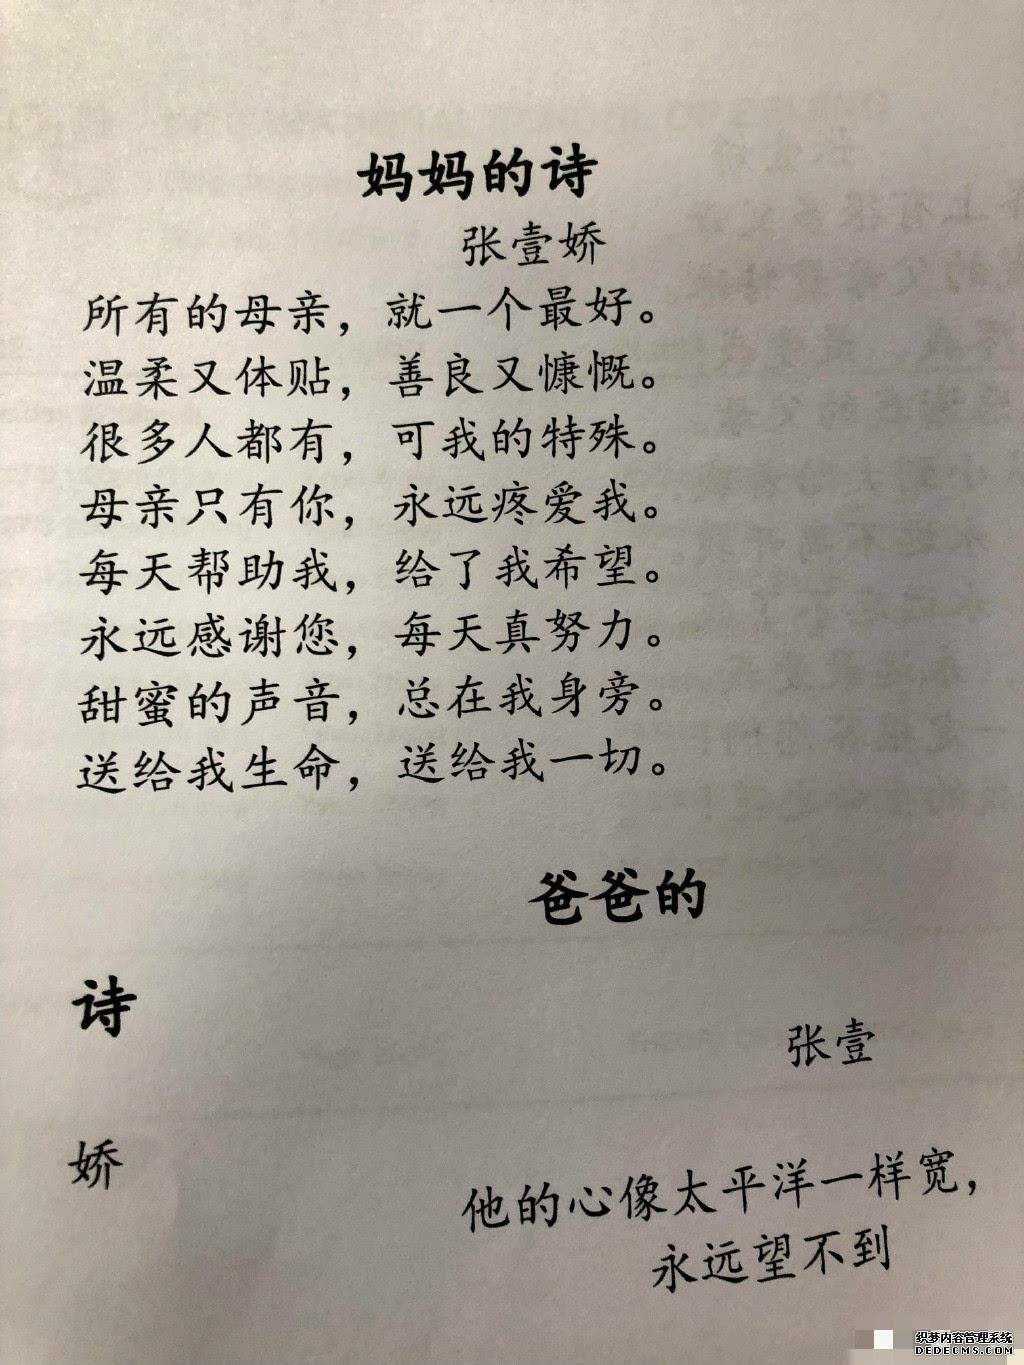 妈妈的诗
张壹娇
所有的母亲，就一个最好。
温柔又体贴，善良又慷慨。
很多人都有，可我的特殊。
母亲只有你，永远疼爱我。
每天帮助我，给了我希望。
永远感谢您，每天真努力。
甜蜜的声音，总在我身旁。
送给我生命，送给我一切。
爸爸的
诗
张壹
娇
他的心像太平洋一样宽，
永远望不到
织梦内容管理系统
DEDECMS.COM